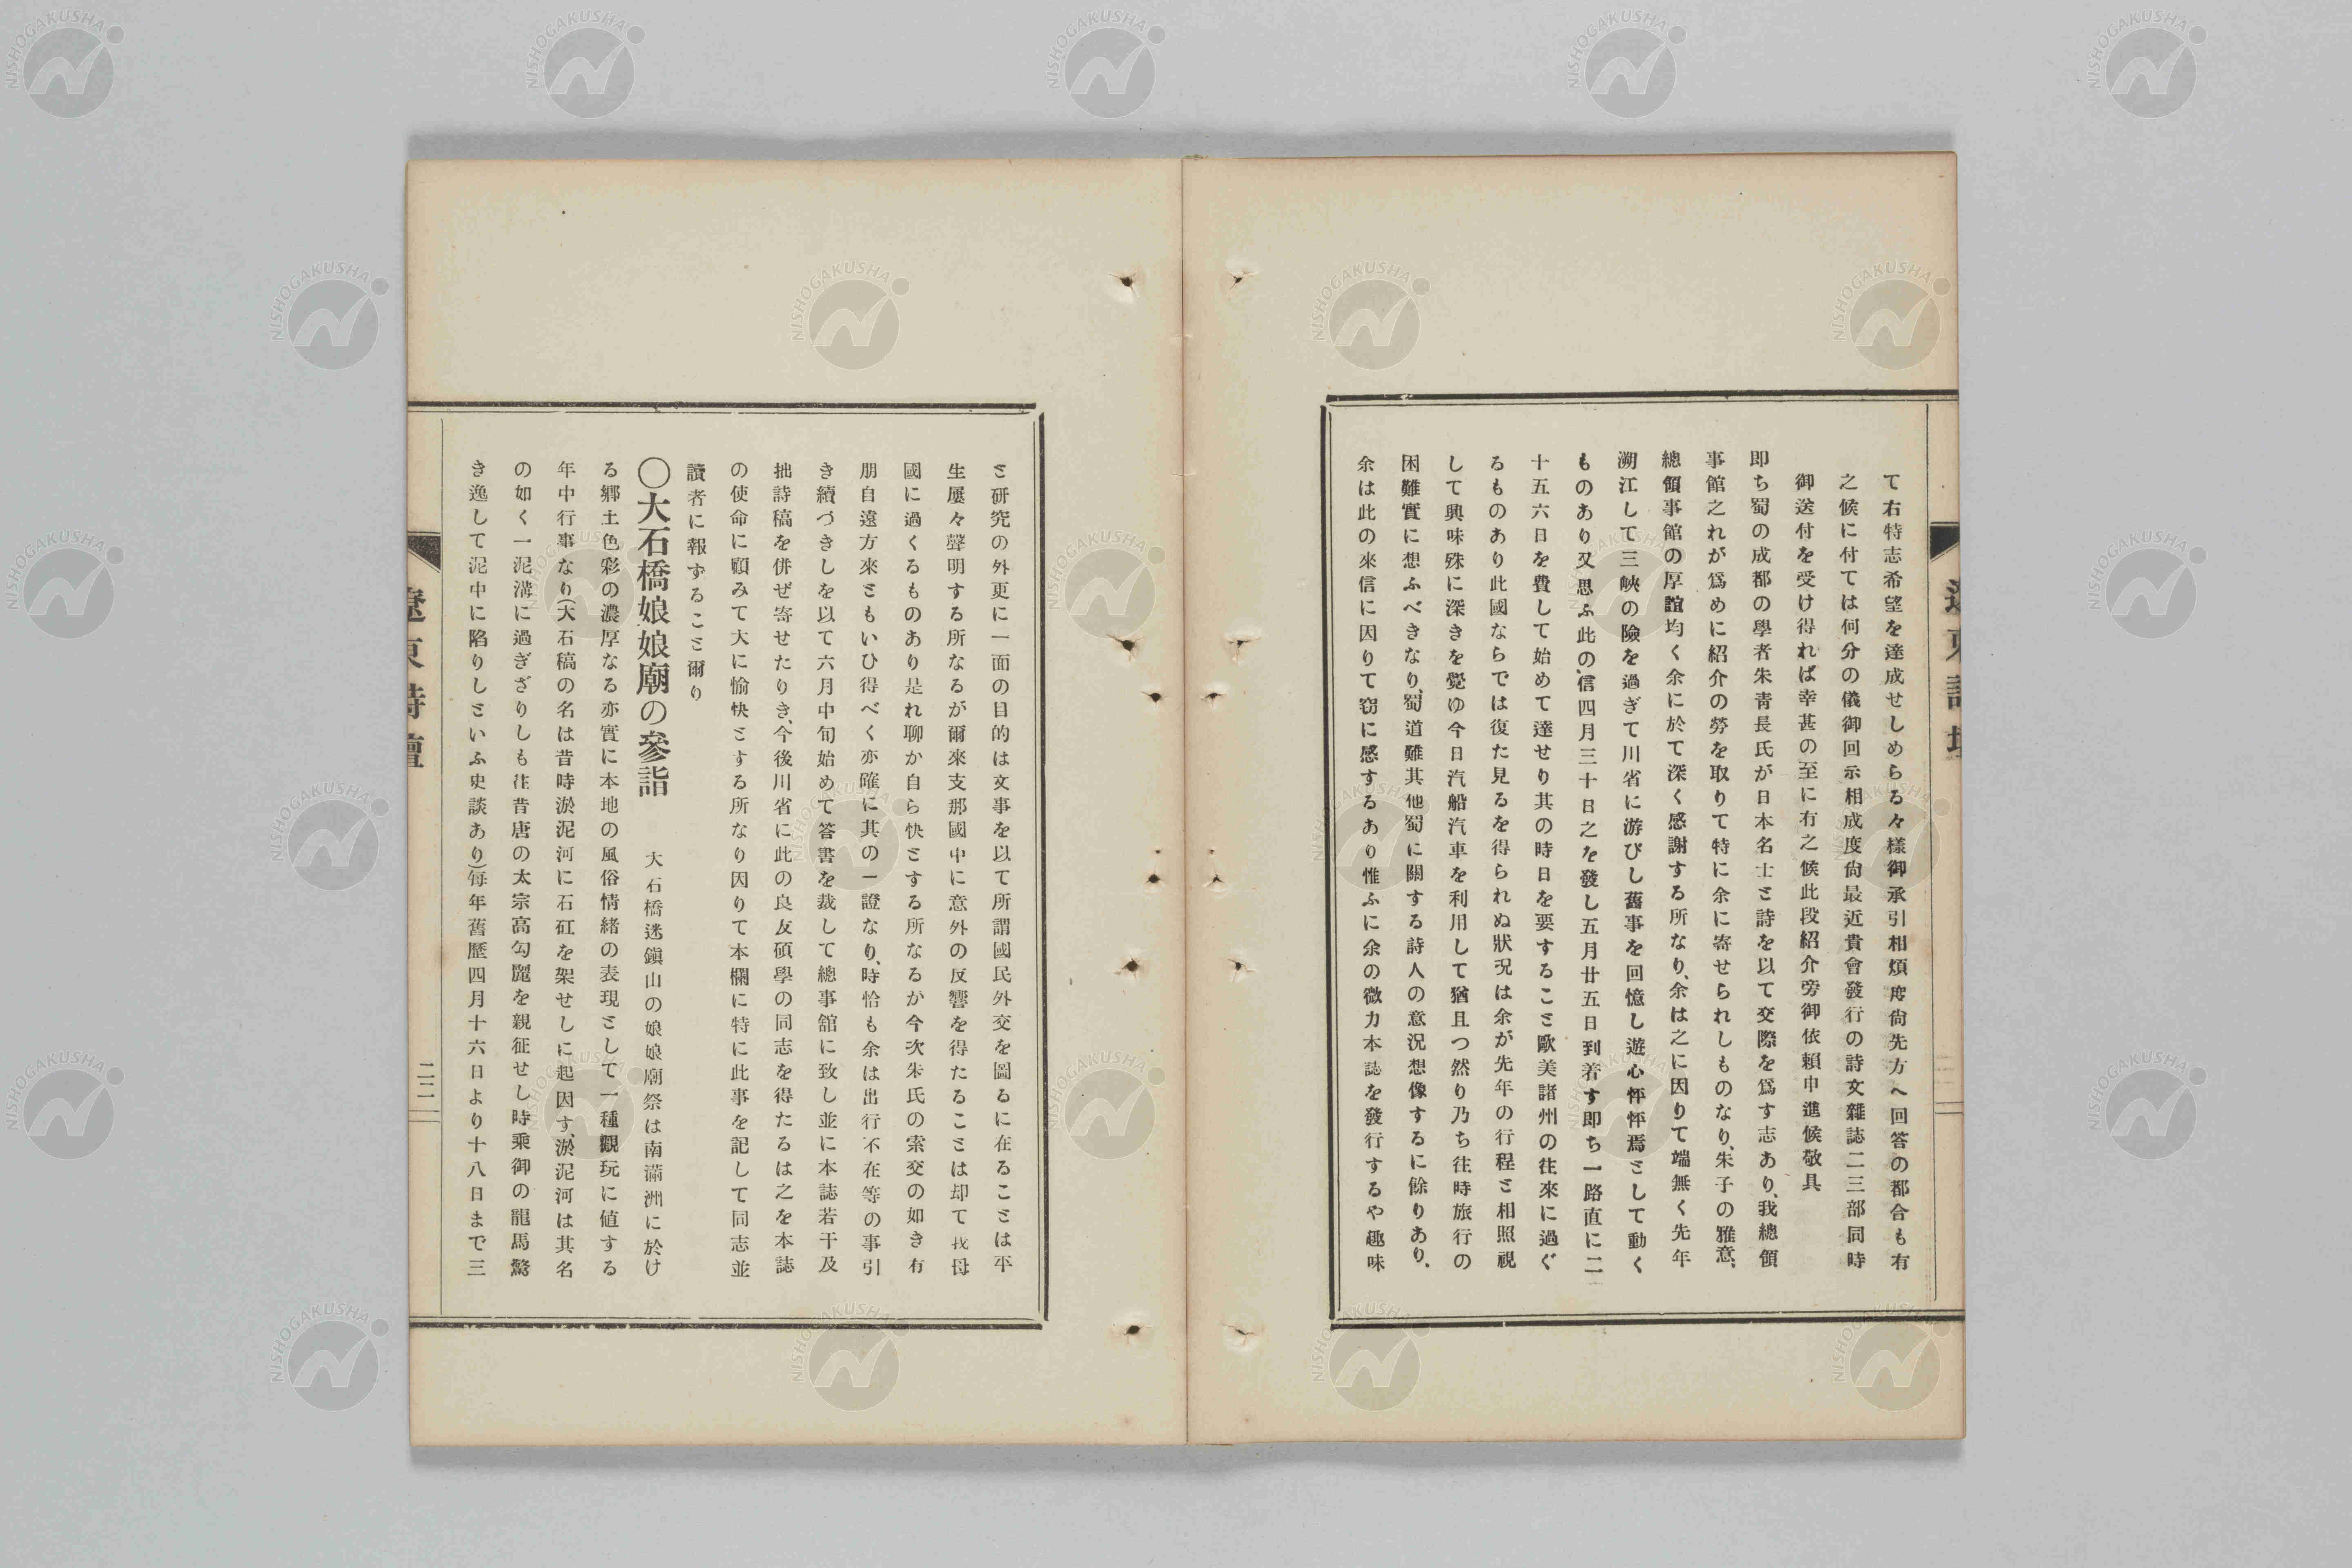 て右特志希望を達成せしめらる々樣御承引相煩度尙先方へ回答の都合も有
之候に付ては何分の儀御回示相成度尙最近貴會發行の詩文雜誌二三部同時
御送付を受け得れば幸甚の至に有之候此段紹介旁御依賴申進候敬具
即ち蜀の成都の學者朱靑長氏が日本名士と詩を以て交際を爲す志あり、我總領
事館之れが爲めに紹介の勞を取りて特に余に寄せられしものなり、朱子の雅意、
總領事館の厚誼均く余に於て深く感謝する所なり、余は之に因りて端無く先年
溯江して三峽の險を過ぎて川省に游びし舊事を回憶し遊心怦怦焉として動く
ものあり又思ふ此の信四月三十日之を發し五月廿五日到着す即ち一路直に二
十五六日を費して始めて達せり其の時日を要すること歐美諸州の往來に過ぐ
るものあり此國ならでは復た見るを得られぬ狀況は余が先年の行程と相照視
して興味殊に深きを覺ゆ今日汽船汽車を利用して猶且つ然り乃ち往時旅行の
困難實に想ふべきなり、蜀道難其他蜀に關する詩人の意況想像するに餘りあり、
余は此の來信に因りて窃に感するあり惟ふに余の微力本誌を發行するや趣味
遼東詩壇
と研究の外更に一面の目的は文事を以て所謂國民外交を圖るに在ることは平
生屢々聲明する所なるが爾來支那國中に意外の反響を得たることは却て我母
國に過くるものあり是れ聊か自ら快とする所なるか今次朱氏の索交の如き有
朋自遠方來ともいひ得べく亦確に其の一證なり、時恰も余は出行不在等の事引
き續づきしを以て六月中旬始めて答書を裁して總事館に致し並に本誌若干及
拙詩稿を併ぜ寄せたりき、今後川省に此の良友碩學の同志を得たるは之を本誌
の使命に顧みて大に愉快とする所なり因りて本欄に特に此事を記して同志並
讀者に報ずること爾り
〇大石橋娘娘廟の參詣　大石橋迷鎭山の娘娘廟祭は南滿洲に於け
る鄕土色彩の濃厚なる亦實に本地の風俗情緖の表現として一種觀玩に値する
年中行事なり(大石稿の名は昔時淤泥河に石矼を架せしに起因す、淤泥河は其名
の如く一泥溝に過ぎざりしも往昔唐の太宗高勾麗を親征せし時乘御の龍馬驚
き逸して泥中に陷りしといふ史談あり)每年舊歷四月十六日より十八日まで三
遼東詩壇
二二